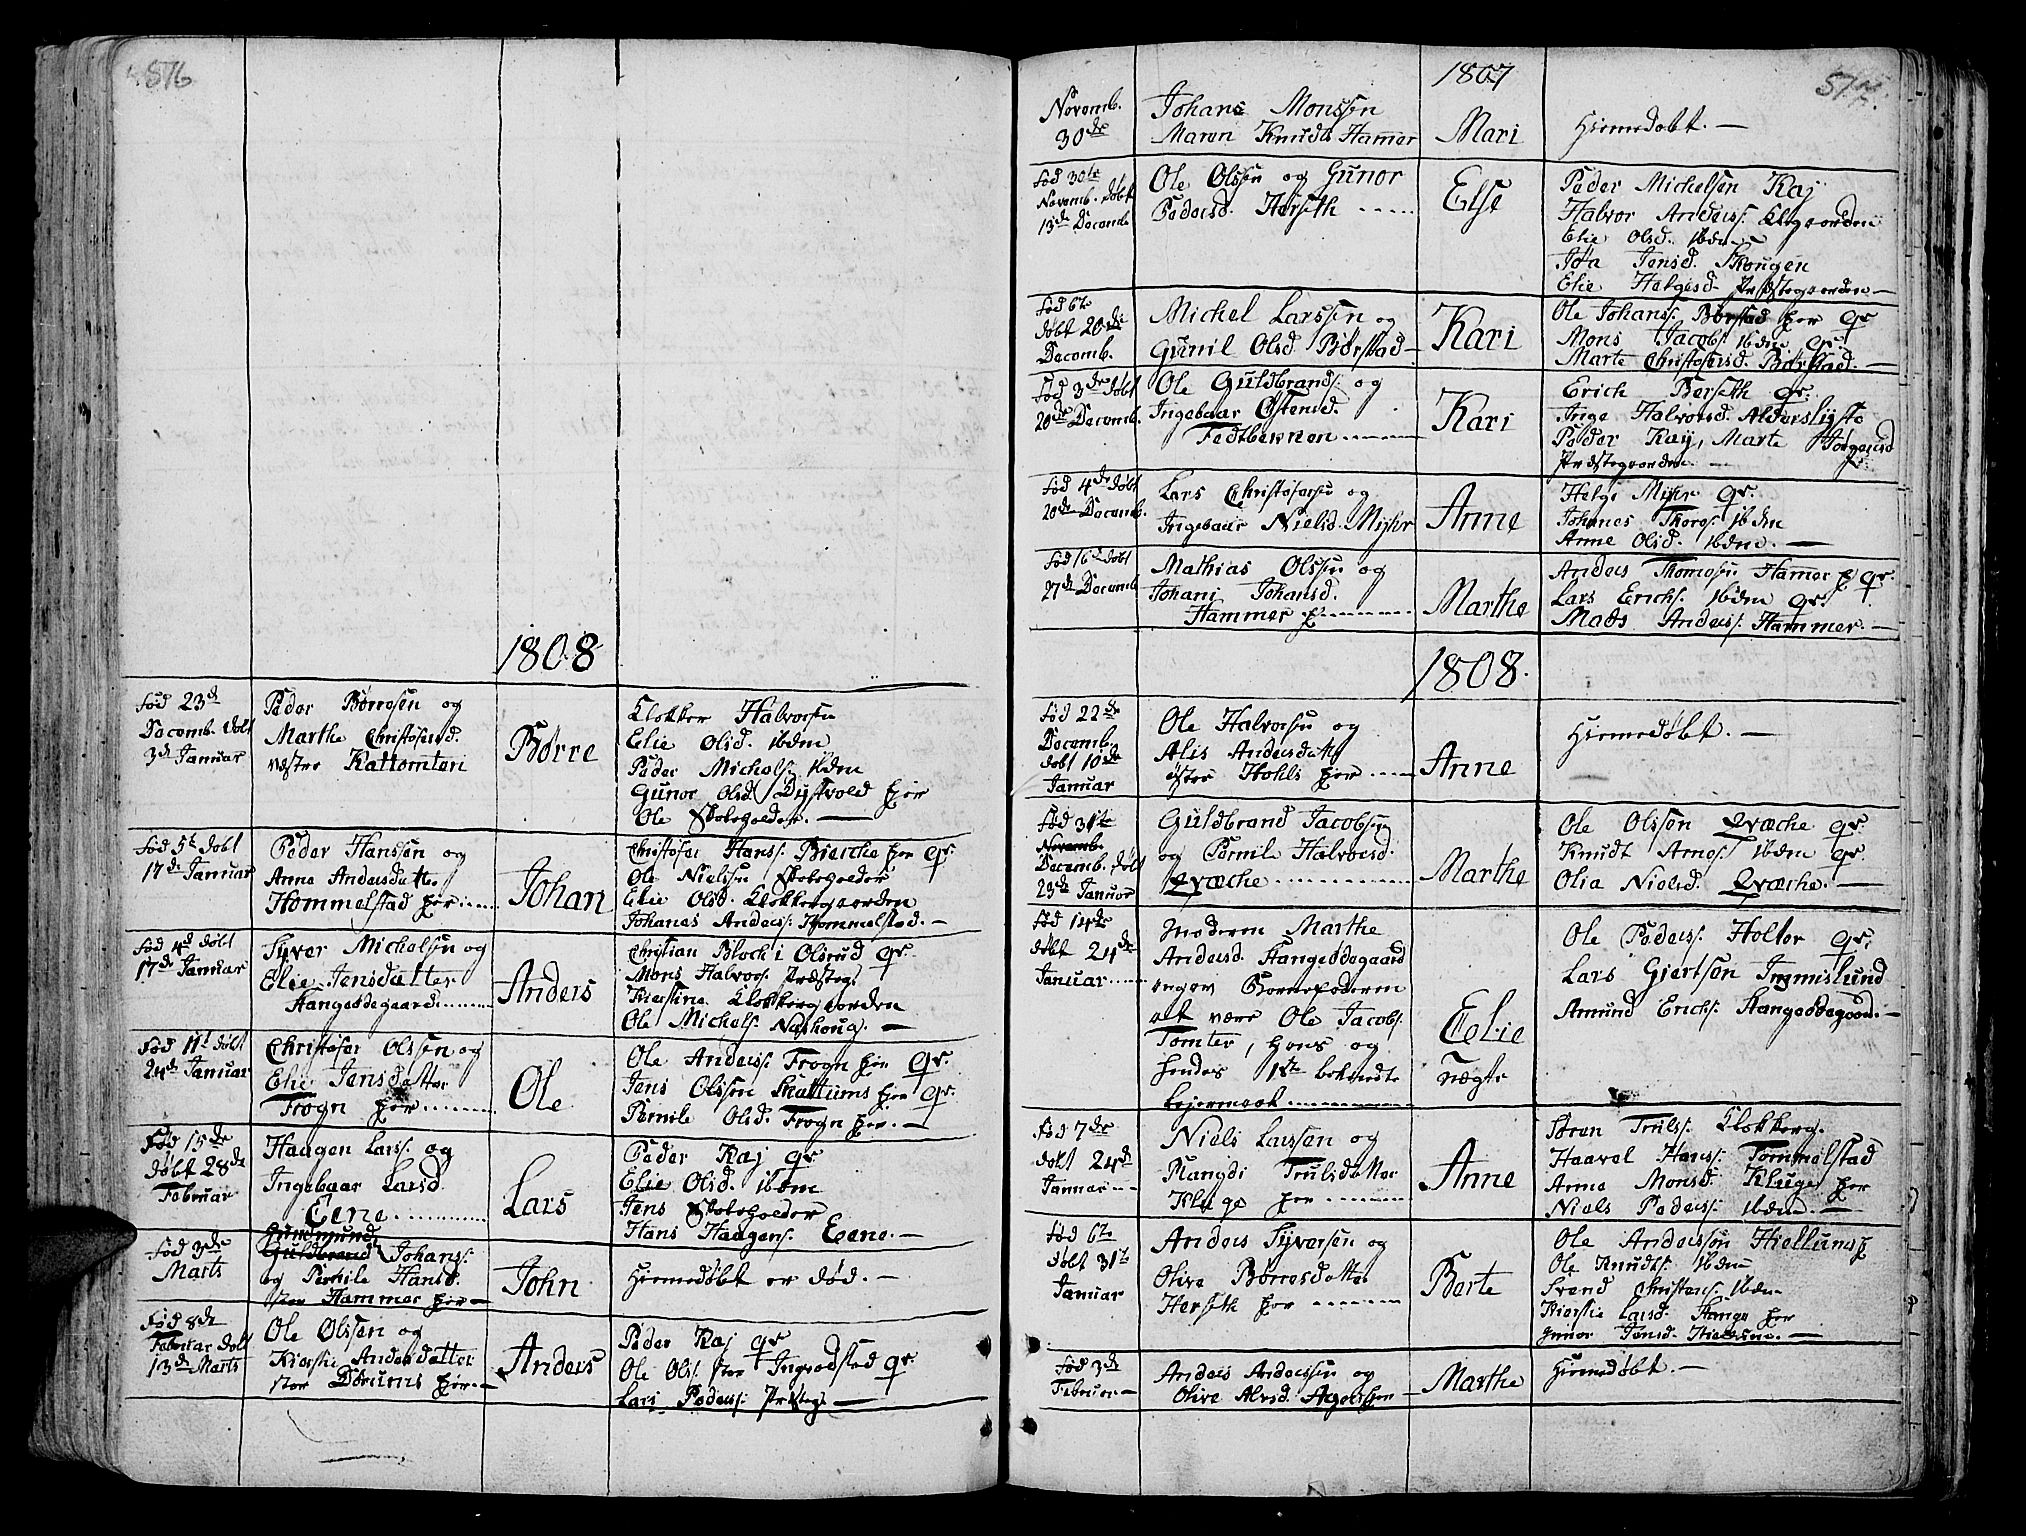 576
1808
Fød 23de
Decemb. døbt
3de Januar
Peder Børresen og
Marthe Christofersd.
vestre Kattomteri
Børre
Klokker Halvorsen
Elie Olsd. ibdm
Peder Michels. ibdem
Gunor Olsd. Dystvold hær
Ole Skolegolder. —
Fød 5te døbt
17de Januar
Peder Hanssen og
Anne Andersdatter
Hommelstad hær
Johan
Christofer Hanss. Biercke hær gr.
Ole Nielsen Skolegolder
Elie Olsd. Klokkergaarden
Johanes Anders. Hommelstad. —
Fød 4de døbt
17de Januar
Syver Michelsen og
Elie Jensdatter
Hangeødegaard
Anders
Christian Bloch i Olsrud gr.
Mons Halvors. Præsteg.
Kierstine Klokkergaarden
Ole Michels. Nashoug. —
Fød 11te døbt
24de Januar
Christofer Olssen og
Elie Jensdatter
Frogn hær
Ole
Ole Anderss. Frogn hær gr.
Jens Olssen Skattums hær gr.
Pernile Olsd. Frogn hær. —
Fød 15de
døbt 28de
Februar
Haagen Larss. og
Ingebaar Larsd.
Eene
Lars
Peder Kaj gr.
Elie Olsd. ibdm
Jens Skolegolder
Hans Haagens. Eene. —
Fød 3de
Marts
Gudmund
Guldbrand Johanss.
og Pernile Hansd.
stor Hammer hær —
John
Hiemedøbt er død. —
Fød 8de
Februar døbt
13de Marts
Ole Olssen og
Kierstie Andersdatter
stor Dørums hær —
Anders
Peder Kaj gr.
Ole Ols. stor Ingvodstad gr.
Lars Pederss. Præsteg. —
1807
577.
Novemb.
30de
Johans Monssen
Maren Knudts Hamer
Mari
Hiemedøbt. —
Fød 30te
Novemb. døbt
13de Decemb.
Ole Olssen og Gunor
Pedersd. Herseth
Else
Peder Michelsen Kaj
Halvor Anderss. Klogaarden
Elie Olsd. ibdm
Jöa Jensd. Skougen
Elie Helgesd. Præstegaarden —
Fød 6te
døbt 20de
Decemb.
Michel Larssen og
Gunil Olsd. Børstad —
Kari
Ole Johans. Børstad hær gr
Mons Jacobs. ibdm gr.
Marte Christofersd. Børstad. —
Fød 3de døbt
20de Decemb.
Ole Guldbrands. og
Ingebaar Østensd.
Fedtbernen
Kari
Erich Berseth gr.
Inge Halvorsd. Alderslyste
Peder Kay, Marte Jørgensd
Præstegaarden. —
Fød 4de døbt
20de Decemb.
Lars Christofersen og
Ingebaar Nielsd. Myhr
Anne
Helge Myhr gr.
Johanes Thoros. ibdem
Anne Olsd. ibdm. —
Fød 16de døbt
27de Decemb
Mathias Olssen og
Johane Johansd.
Hammer h
Marthe
Anders Thomesen Hamer h gr.
Lars Erichs. ibdem gr.
Mads Anderss. Hammer. —
1808.
Fød 22de
Decemb.
døbt 10de
Januar
Ole Halvorsen og
Alis Andersdatter
østre Hohls hær
Anne
Hiemedøbt. —
Fød 31te
Novemb.
Decemb. døbt
23de Januar
Guldbrand Jacobsen
og Pernile Halvorsd.
Qvæche
Marthe
Ole Olssen Qvæche gr.
Knudt Arnes. ibdem gr.
Olia Nielsd. Qvæche. —
Fød 14de
døbt 24de
Januar
Moderen Marthe
Andersd. Hangeødegaard
angav Barnefaderen
at være Ole Jacobs.
Tomter, hans og
hendes 1ste bekiendte
Lejermaal
Eelie
Nægte
Ole Pederss. Holter gr.
Lars Gjertsen Immislund
Amund Erichs. Hangeødegaard. —
Fød 7de
døbt 24de
Januar
Niels Larssen og
Rangdi Trulsdatter
Kluge hær
Anne
Søren Truls. Klokkerg.
Haavel Hans. Tommelstad
Anne Monsd. Kluge hær
Niels Pederss. ibdem. —
Fød 6te
døbt 31te
Januar
Anders Syversen og
Olive Børresdatter
Herseth hær
Berte
Ole Andersson Hiellums h
Ole Knudts. ibdem
Svend Christens. ibdm
Kierstie Larsd. Hange hær
Gunor Jensd. Hiellum. —
Fød 3de
Februar —
Anders Anderssen og
Olive Alvsd. Ageles hær
Marthe
Hiemedøbt. —